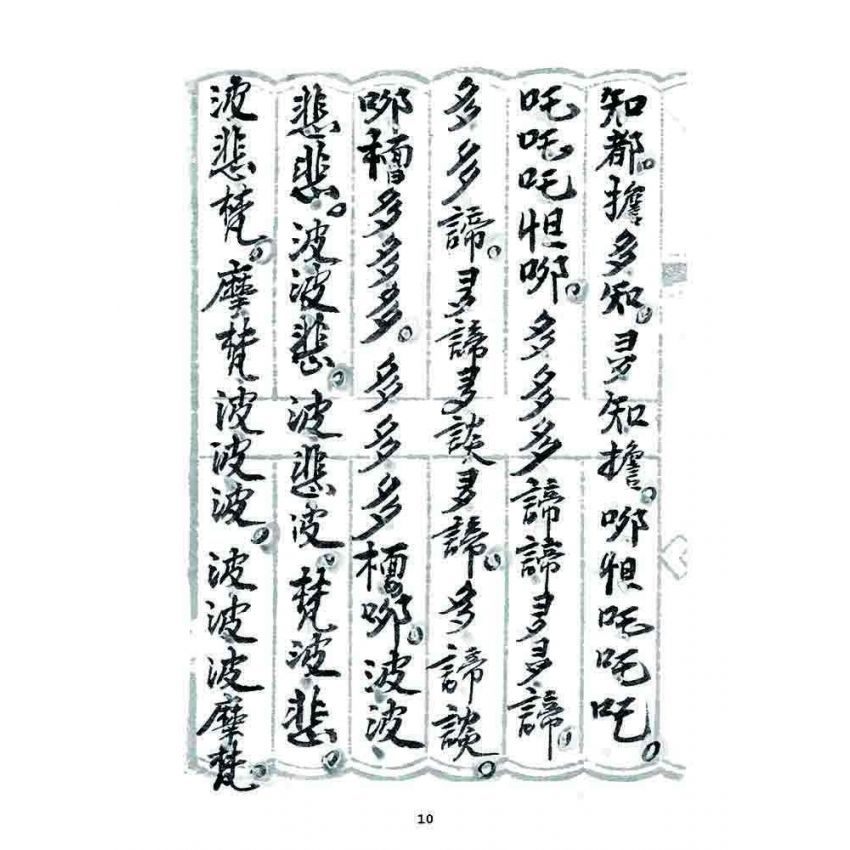 知都。擔多知。多知擔。哪怛吒吒吒。
吒吒吒怛哪。多多多諦諦多多諦。
多多諦。多諦多談多諦。多諦談。
哪檀多多多。多多多檀哪。波波
悲悲。波波悲。波悲波。梵波悲。
波悲梵。摩梵波波波。波波波摩梵。
10